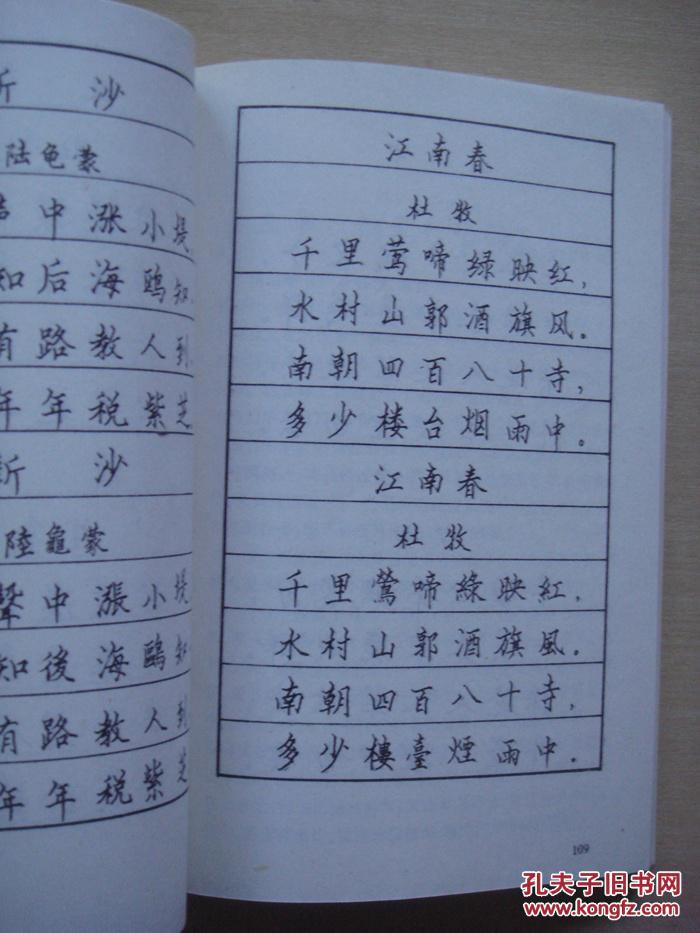 新沙
陆龟蒙
声中涨小堤,
知后海鸥知.
有路教人到,
年年税紫芝
新沙
陸龜蒙
聲中漲小堤
知後海鷗知
有路教人到
年年税紫芝
江南春
杜牧
千里莺啼绿映红,
水村山郭酒旗风。
南朝四百八十寺,
多少楼台烟雨中。
江南春
杜牧
千里鶯啼綠映紅,
水村山郭酒旗風。
南朝四百八十寺,
多少樓臺煙雨中。
109
孔夫子旧书网
www.kongfz.com